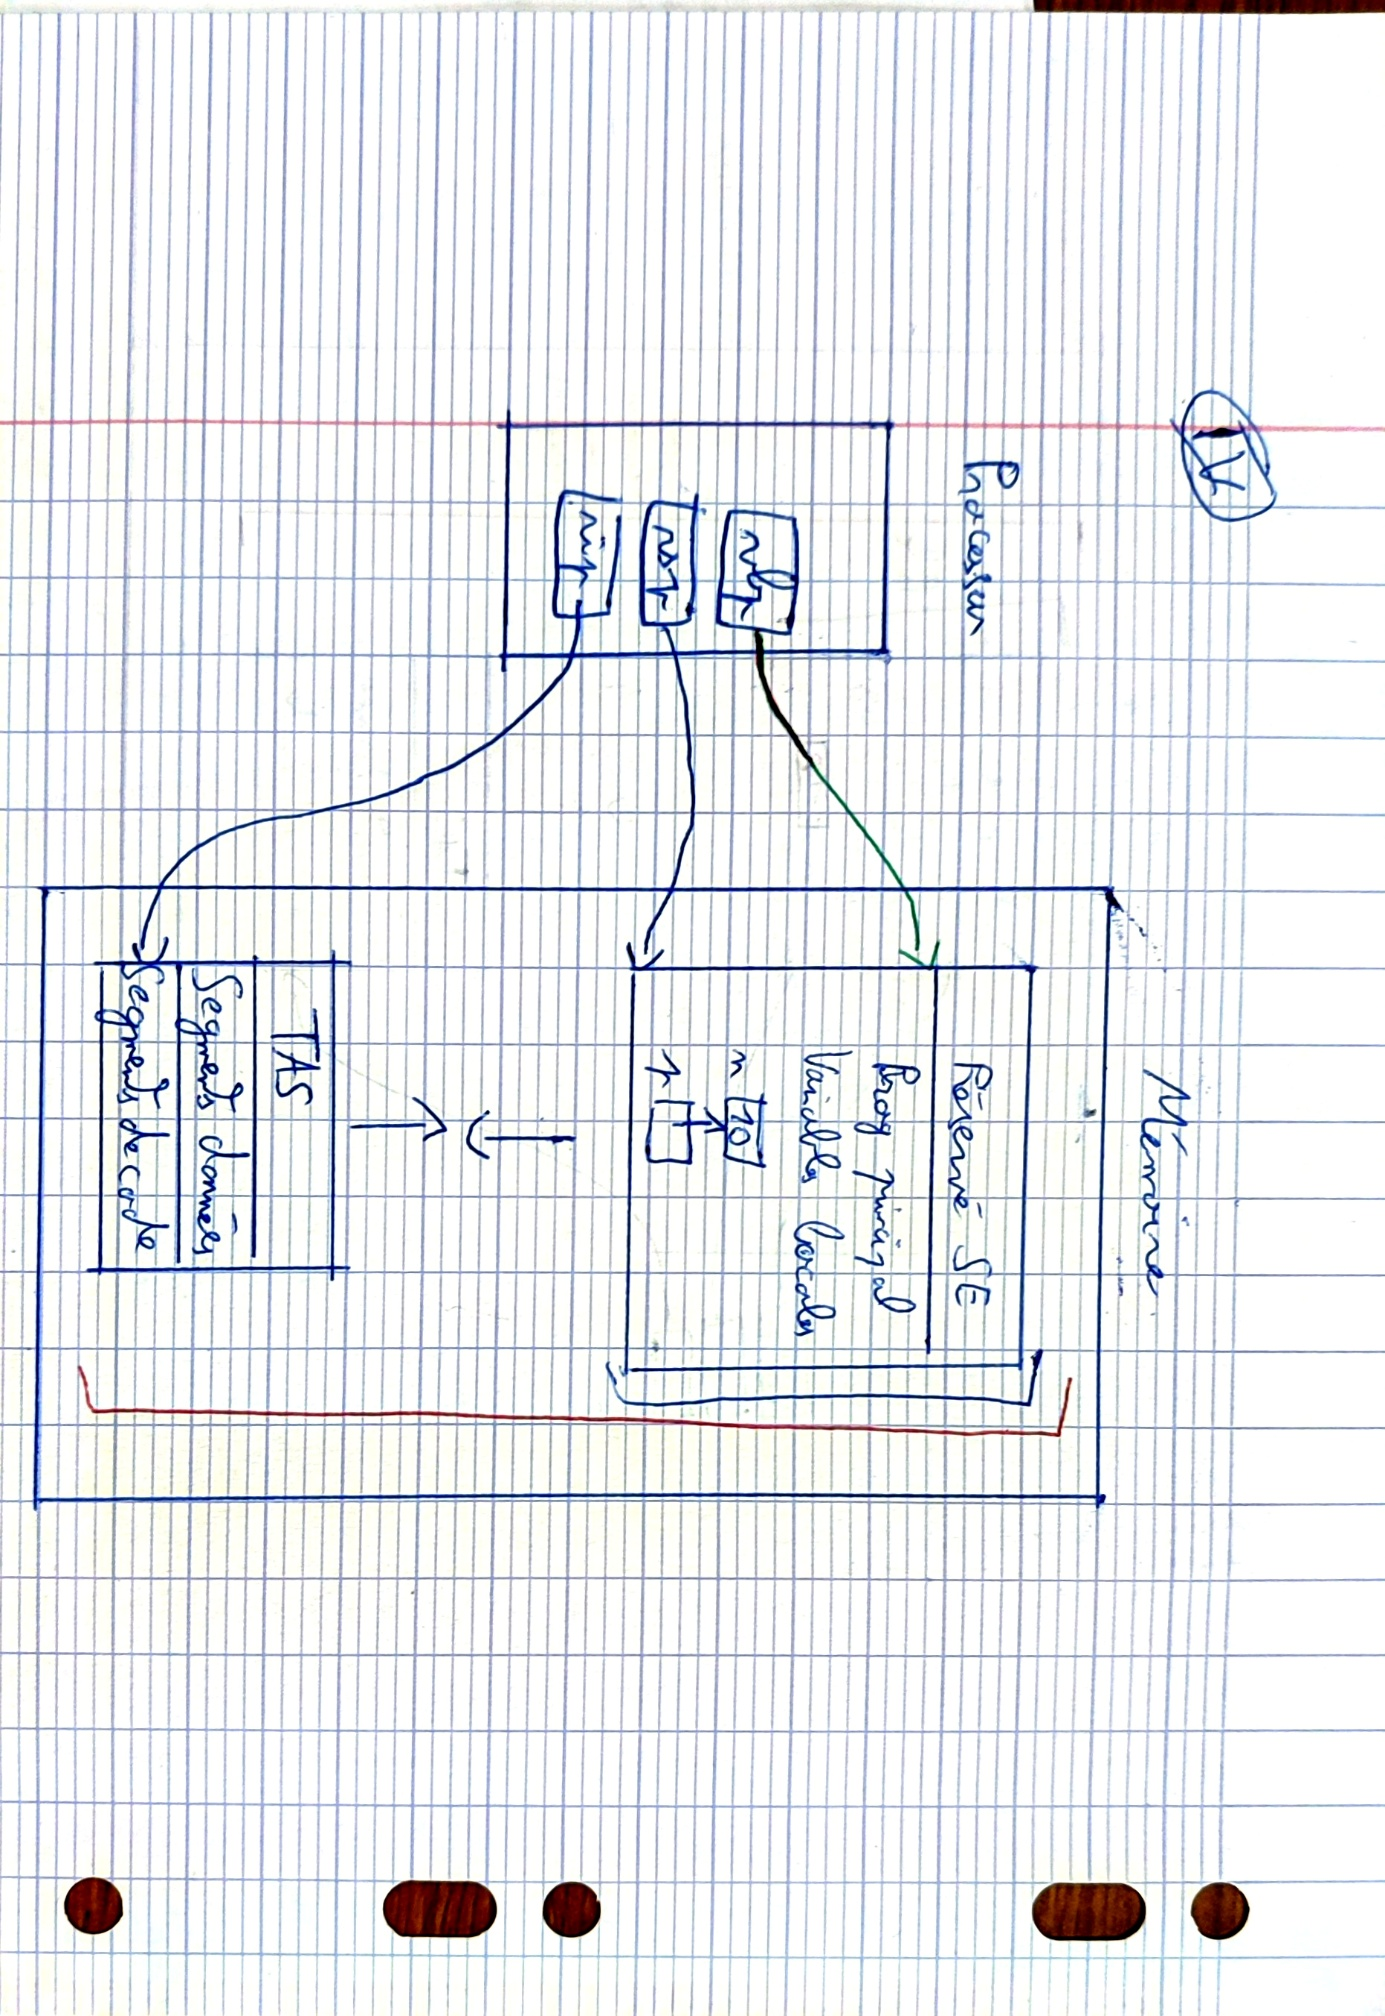 Processeur
rbp
rsp
rip
Mémoire
Réservé SE
Prog principal
Variables locales
n 10
p
TAS
Segments données
Segments de code